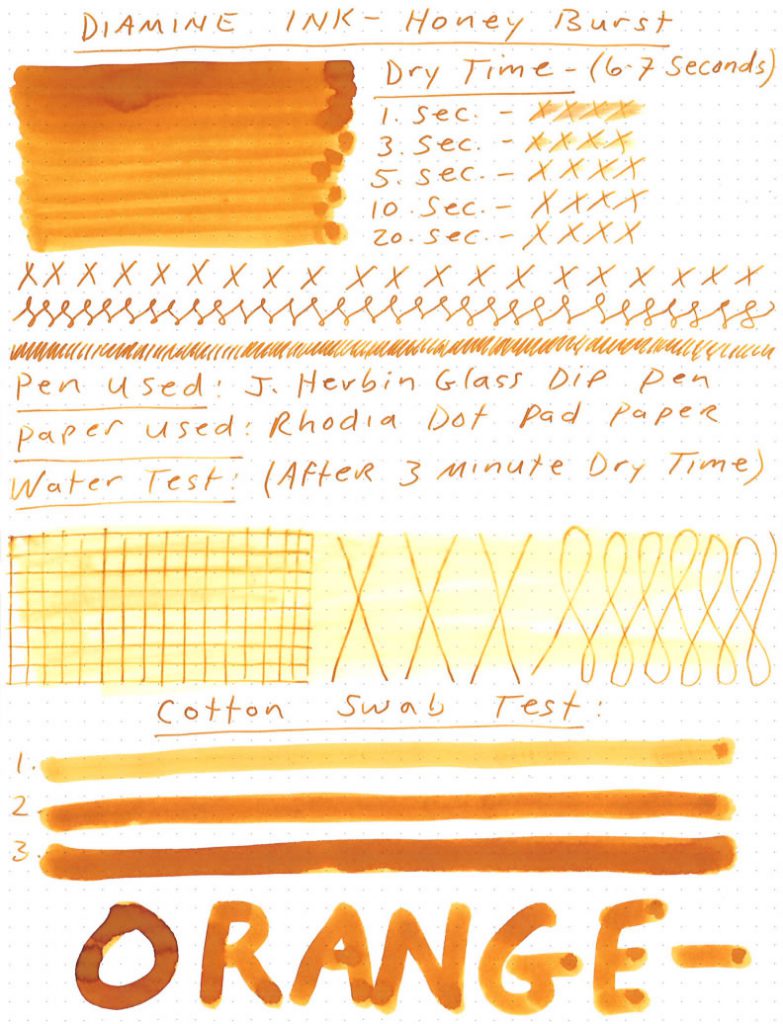 DIAMINE INK - Honey Burst
Dry Time - (6-7 Seconds)
1. Sec. - X X X X
3. Sec. - X X X X
5. Sec. - X X X X
10. Sec. - X X X X
20. Sec. - X X X X
X X X X X X X X X X X X X X X X X X X
Pen Used: J. Herbin Glass Dip Pen
Paper Used: Rhodia Dot Pad Paper
Water Test: (After 3 Minute Dry Time)
Cotton Swab Test:
1.
2.
3.
ORANGE-